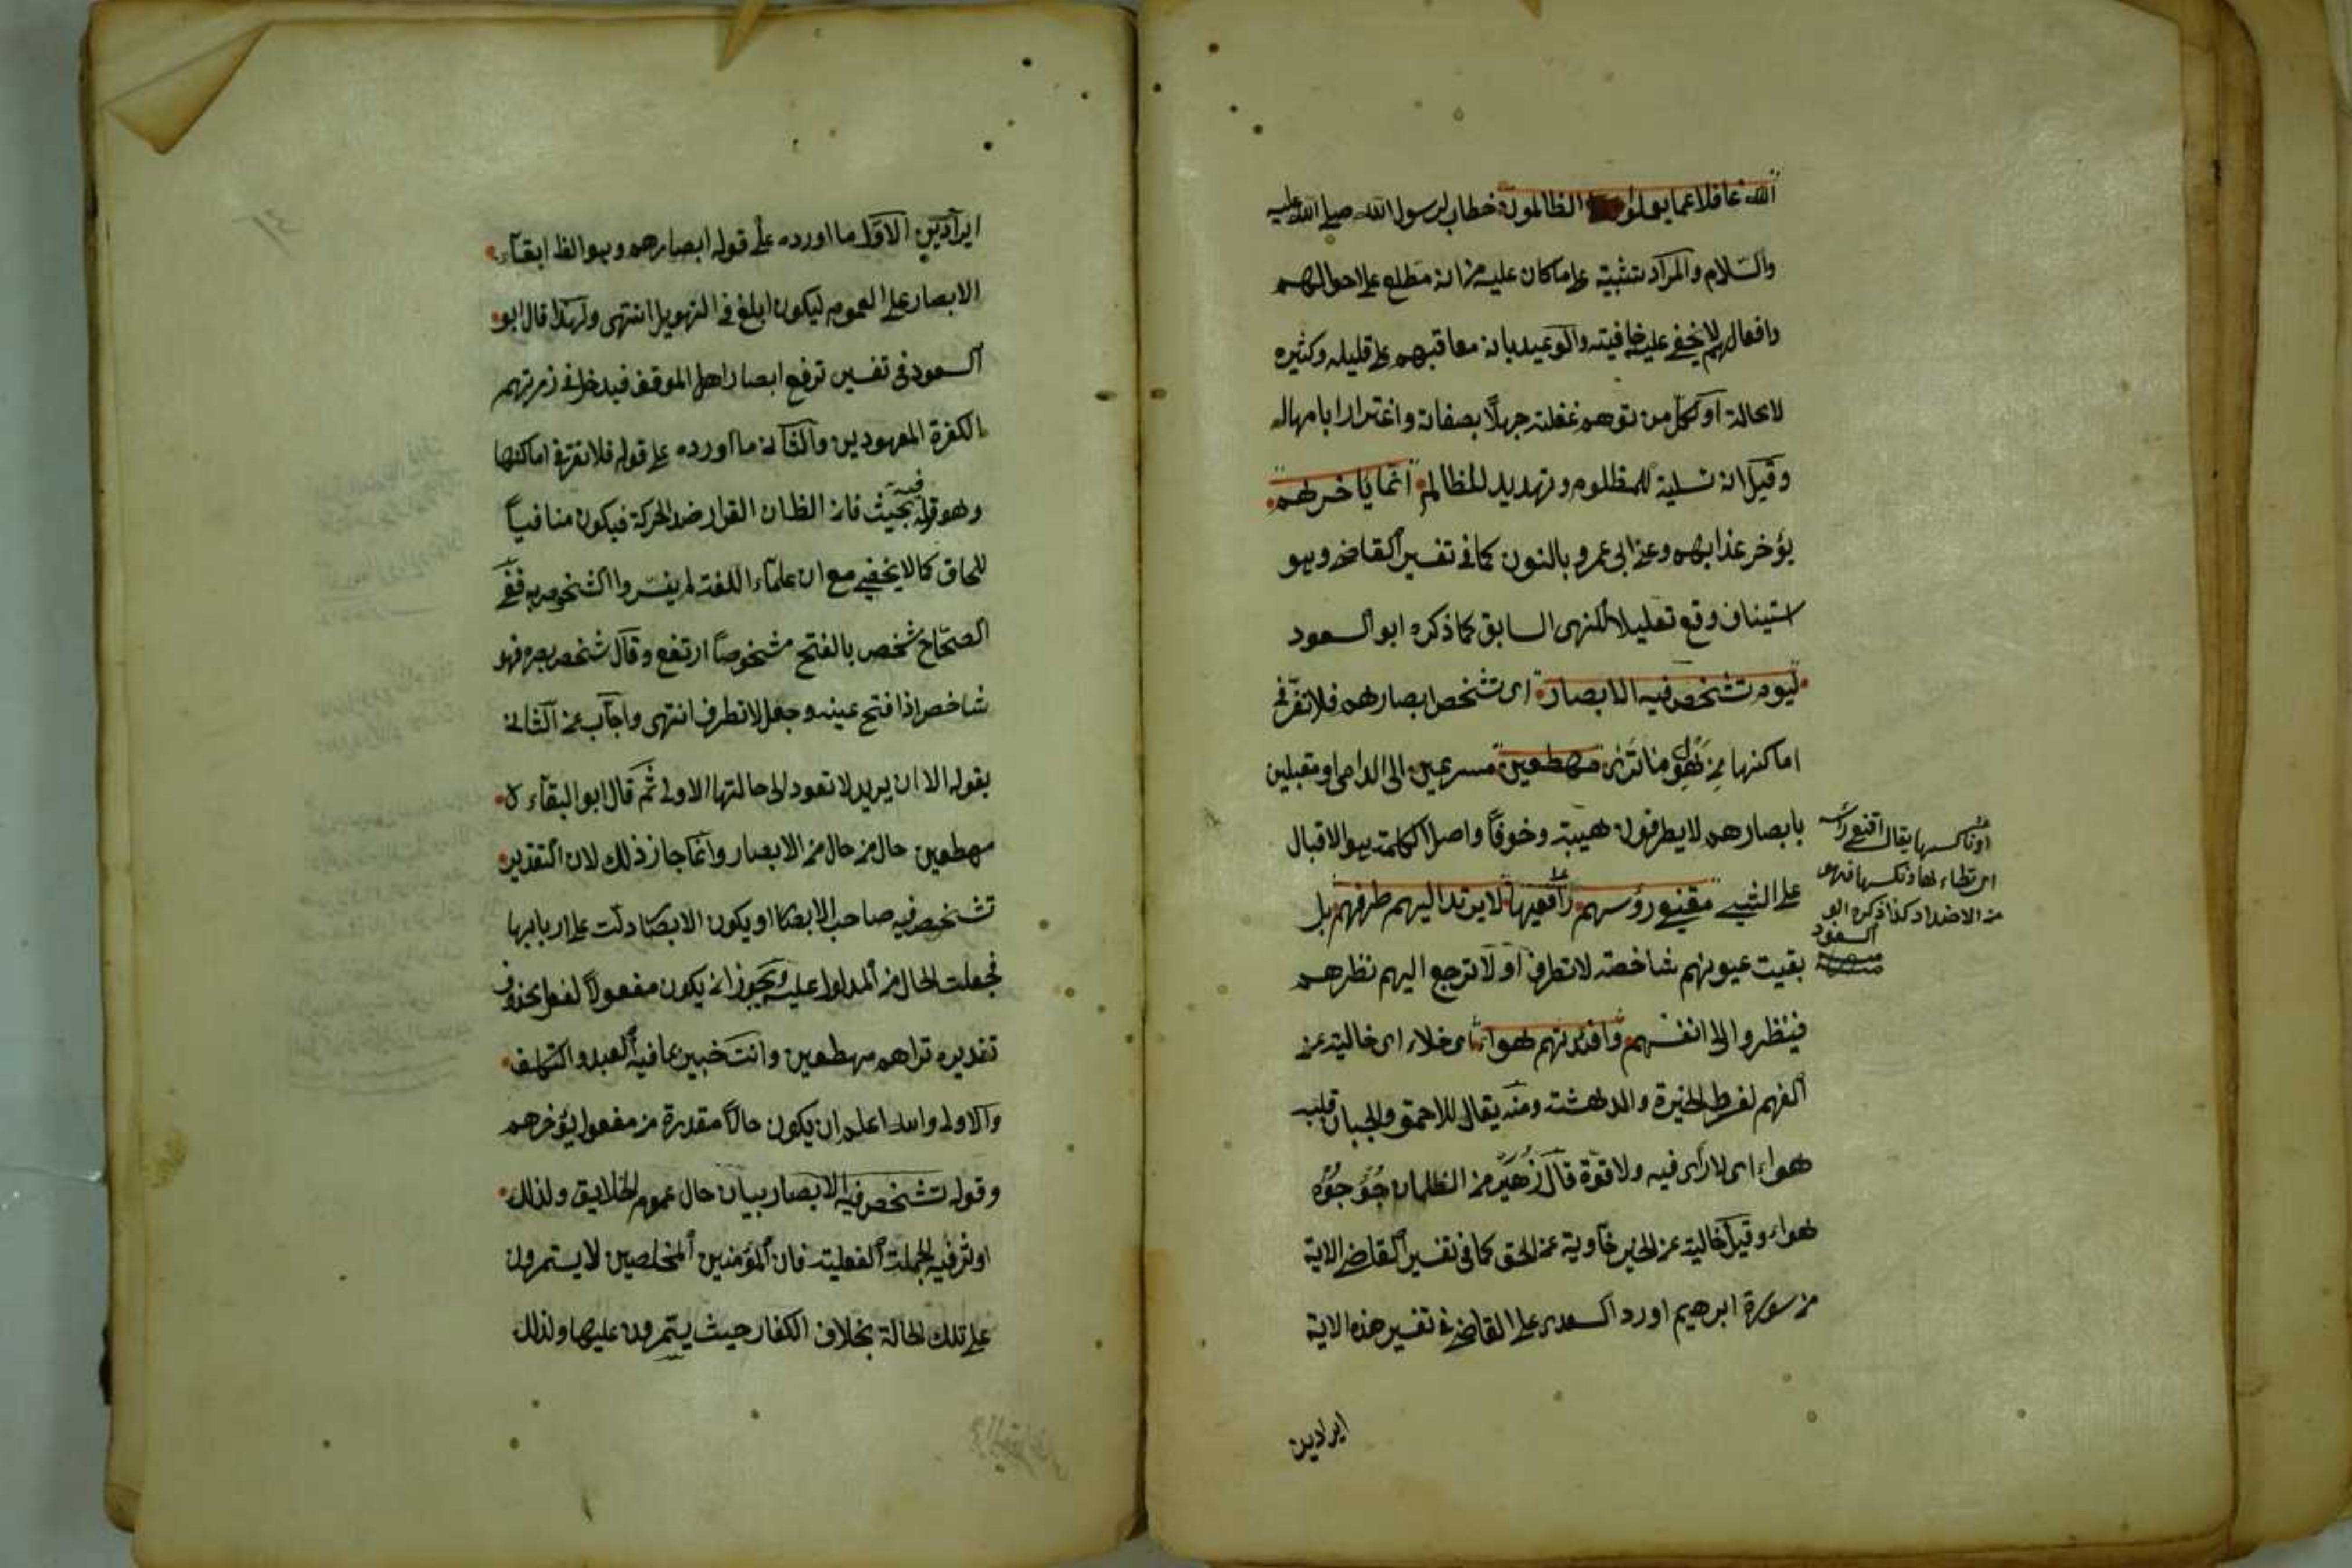 الله غافلا عما يعملوا الظالمون خطاب لرسول الله صلى الله عليه
والسلام والمراد تثبيته على ما كان عليه من انه مطلع على احوالهم
وافعالهم لا يخفى عليه خافية والوعيد بانه معاقبهم على قليله وكثيره
لا محالة او لكل من توهم غفلته جهلا بصفاته واغترارا بامهاله
وقيل انه تسلية للمظلوم وتهديد للظالم انما ياخرهم
يؤخر عذابهم وعن ابى عمرو بالنون كما فى تفسير القاضى وهو
استيناف وقع تعليلا للنهى السابق كما ذكره ابو السعود
ليوم تشخص فيه الابصار اى تشخص ابصارهم فلا تقر فى
اماكنها من هول ما ترى مهطعين مسرعين الى الداعى او مقبلين
بابصارهم لا يطرفون هيبة وخوفا واصل الكلمة هو الاقبال
على الشيئ مقنعى رؤسهم رافعيها لا يرتد اليهم طرفهم بل
بقيت عيونهم شاخصة لا تطرف او لا ترجع اليهم نظرهم
فينظروا الى انفسهم وافئدتهم هواء اى خلاء اى خالية عن
الفهم لفرط الحيرة والدهشة ومنه يقال للاحمق والجبان قلبه
هواء اى لا رأى فيه ولا قوة قال زهير من الظلمان جؤجؤه
هواء وقيل خالية عن الخير خاوية عن الحق كما فى تفسير القاضى الاية
من سورة ابرهيم اورد السعدى على القاضى فى تفسير هذه الاية
ايرادين
او ناكسها يقال اقنع رأسه
اى نطاء لها ونكسها فهو
من الاضداد كذا ذكره ابو
السعود
ايرادين الاول ما اورده على قوله ابصارهم وهو الظ ابقاء
الابصار على العموم ليكون ابلغ فى التهويل انتهى ولهذا قال ابو
السعود فى تفسيره ترفع ابصار اهل الموقف فيدخل فى زمرتهم
الكفرة المعهودين والثانى ما اورده على قوله فلا تقر فى اماكنها
وهو قوله فيه بحث فان الظان القرار ضد الحركة فيكون منافيا
للحاق كما لا يخفى مع ان علماء اللغة لم يفسروا الشخوص به ففى
الصحاح شخص بالفتح شخوصا ارتفع وقال شخص بصره فهو
شاخص اذا فتح عينه وجعل لا تطرف انتهى واجاب عن الثانى
بقوله الا ان يريد لا تعود الى حالتها الاولى ثم قال ابو البقاء
مهطعين حال من حال من الابصار وانما جاز ذلك لان التقدير
تشخص فيه صاحب الابصار او يكون الابصار دلت على اربابها
فجعلت الحال من المدلول عليه ويجوز ان يكون مفعولا لفعل محذوف
تقديره تراهم مهطعين وانت خبير بما فيه البعد والتكلف
والاولى والله اعلم ان يكون حالا مقدرة من مفعول يؤخرهم
وقوله تشخص فيه الابصار بيان حال عموم الخلايق ولذلك
اوثر فيه الجملة الفعلية فان المؤمنين المخلصين لا يستمرون
على تلك الحالة بخلاف الكفار حيث يستمرون عليها ولذلك